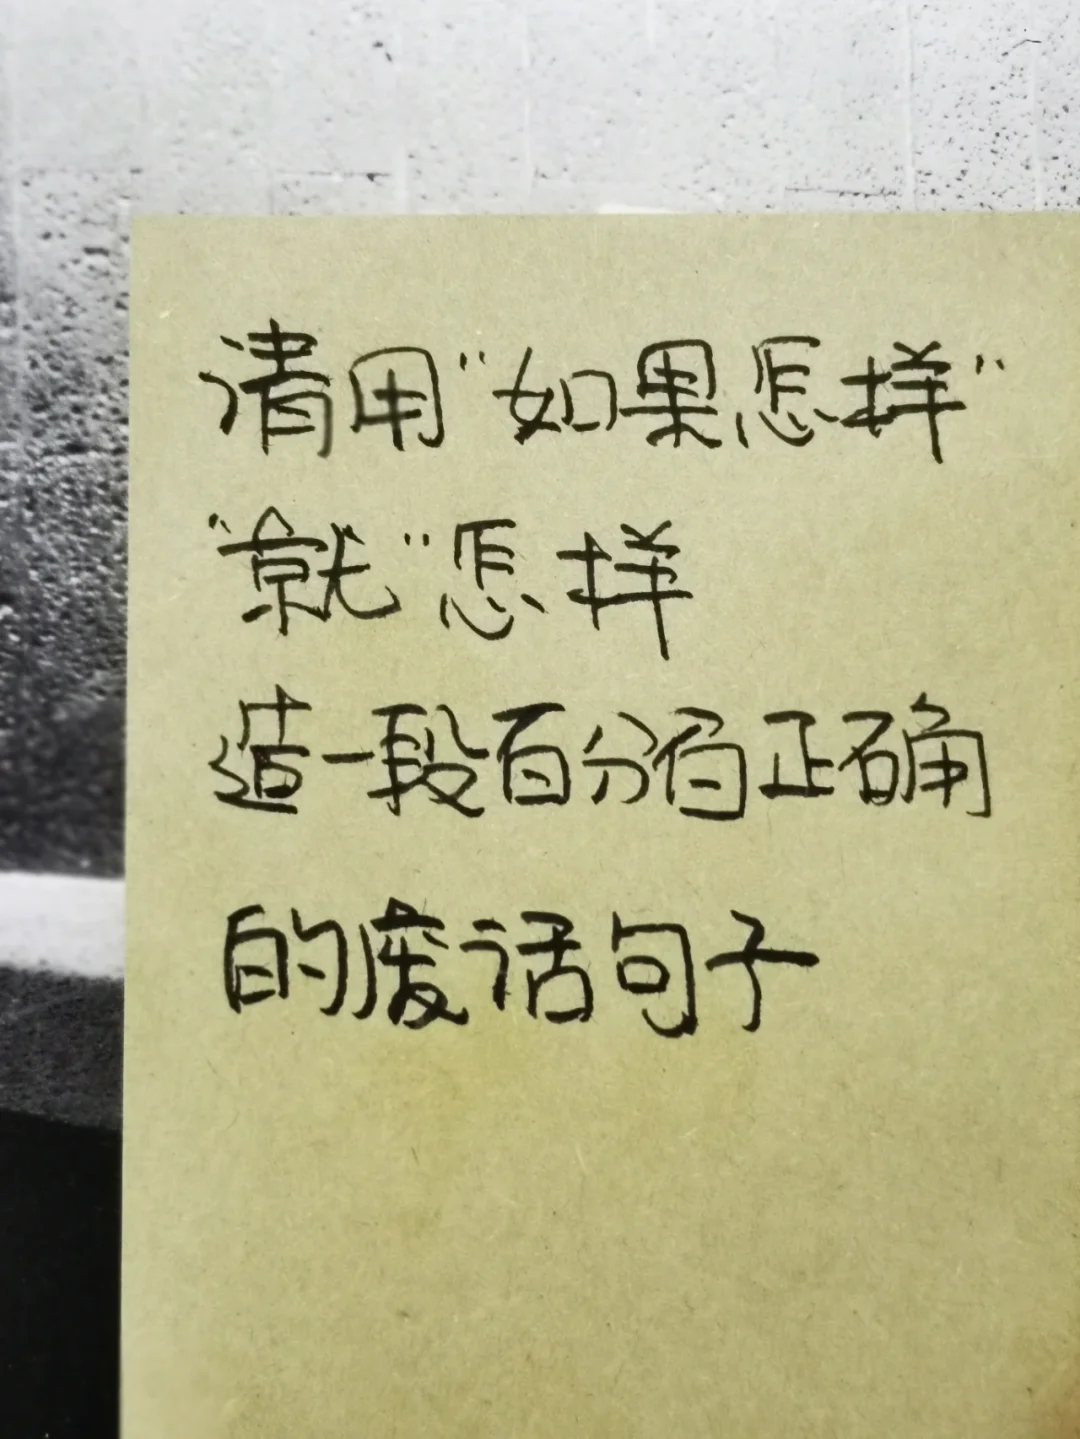 请用“如果怎样”
“就”怎样
造一段百分百正确
的废话句子